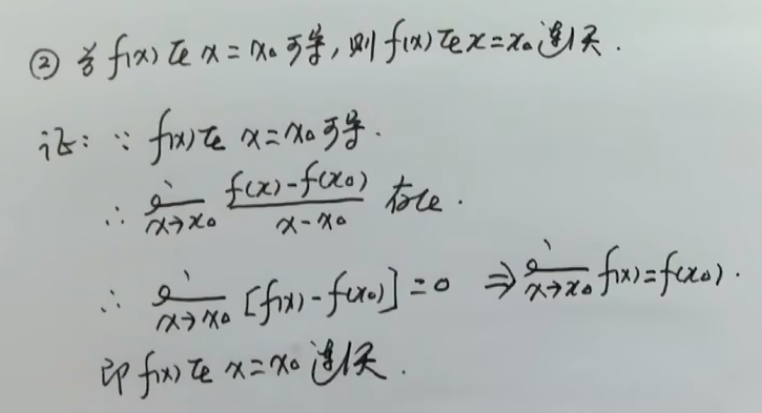 ② 若 f(x) 在 x = x₀ 可导, 则 f(x) 在 x = x₀ 连续.
证: ∵ f(x) 在 x = x₀ 可导.
∴ lim_{x→x₀} \frac{f(x)-f(x₀)}{x-x₀} 存在.
∴ lim_{x→x₀} [f(x)-f(x₀)] = 0 ⇒ lim_{x→x₀} f(x) = f(x₀).
即 f(x) 在 x = x₀ 连续.